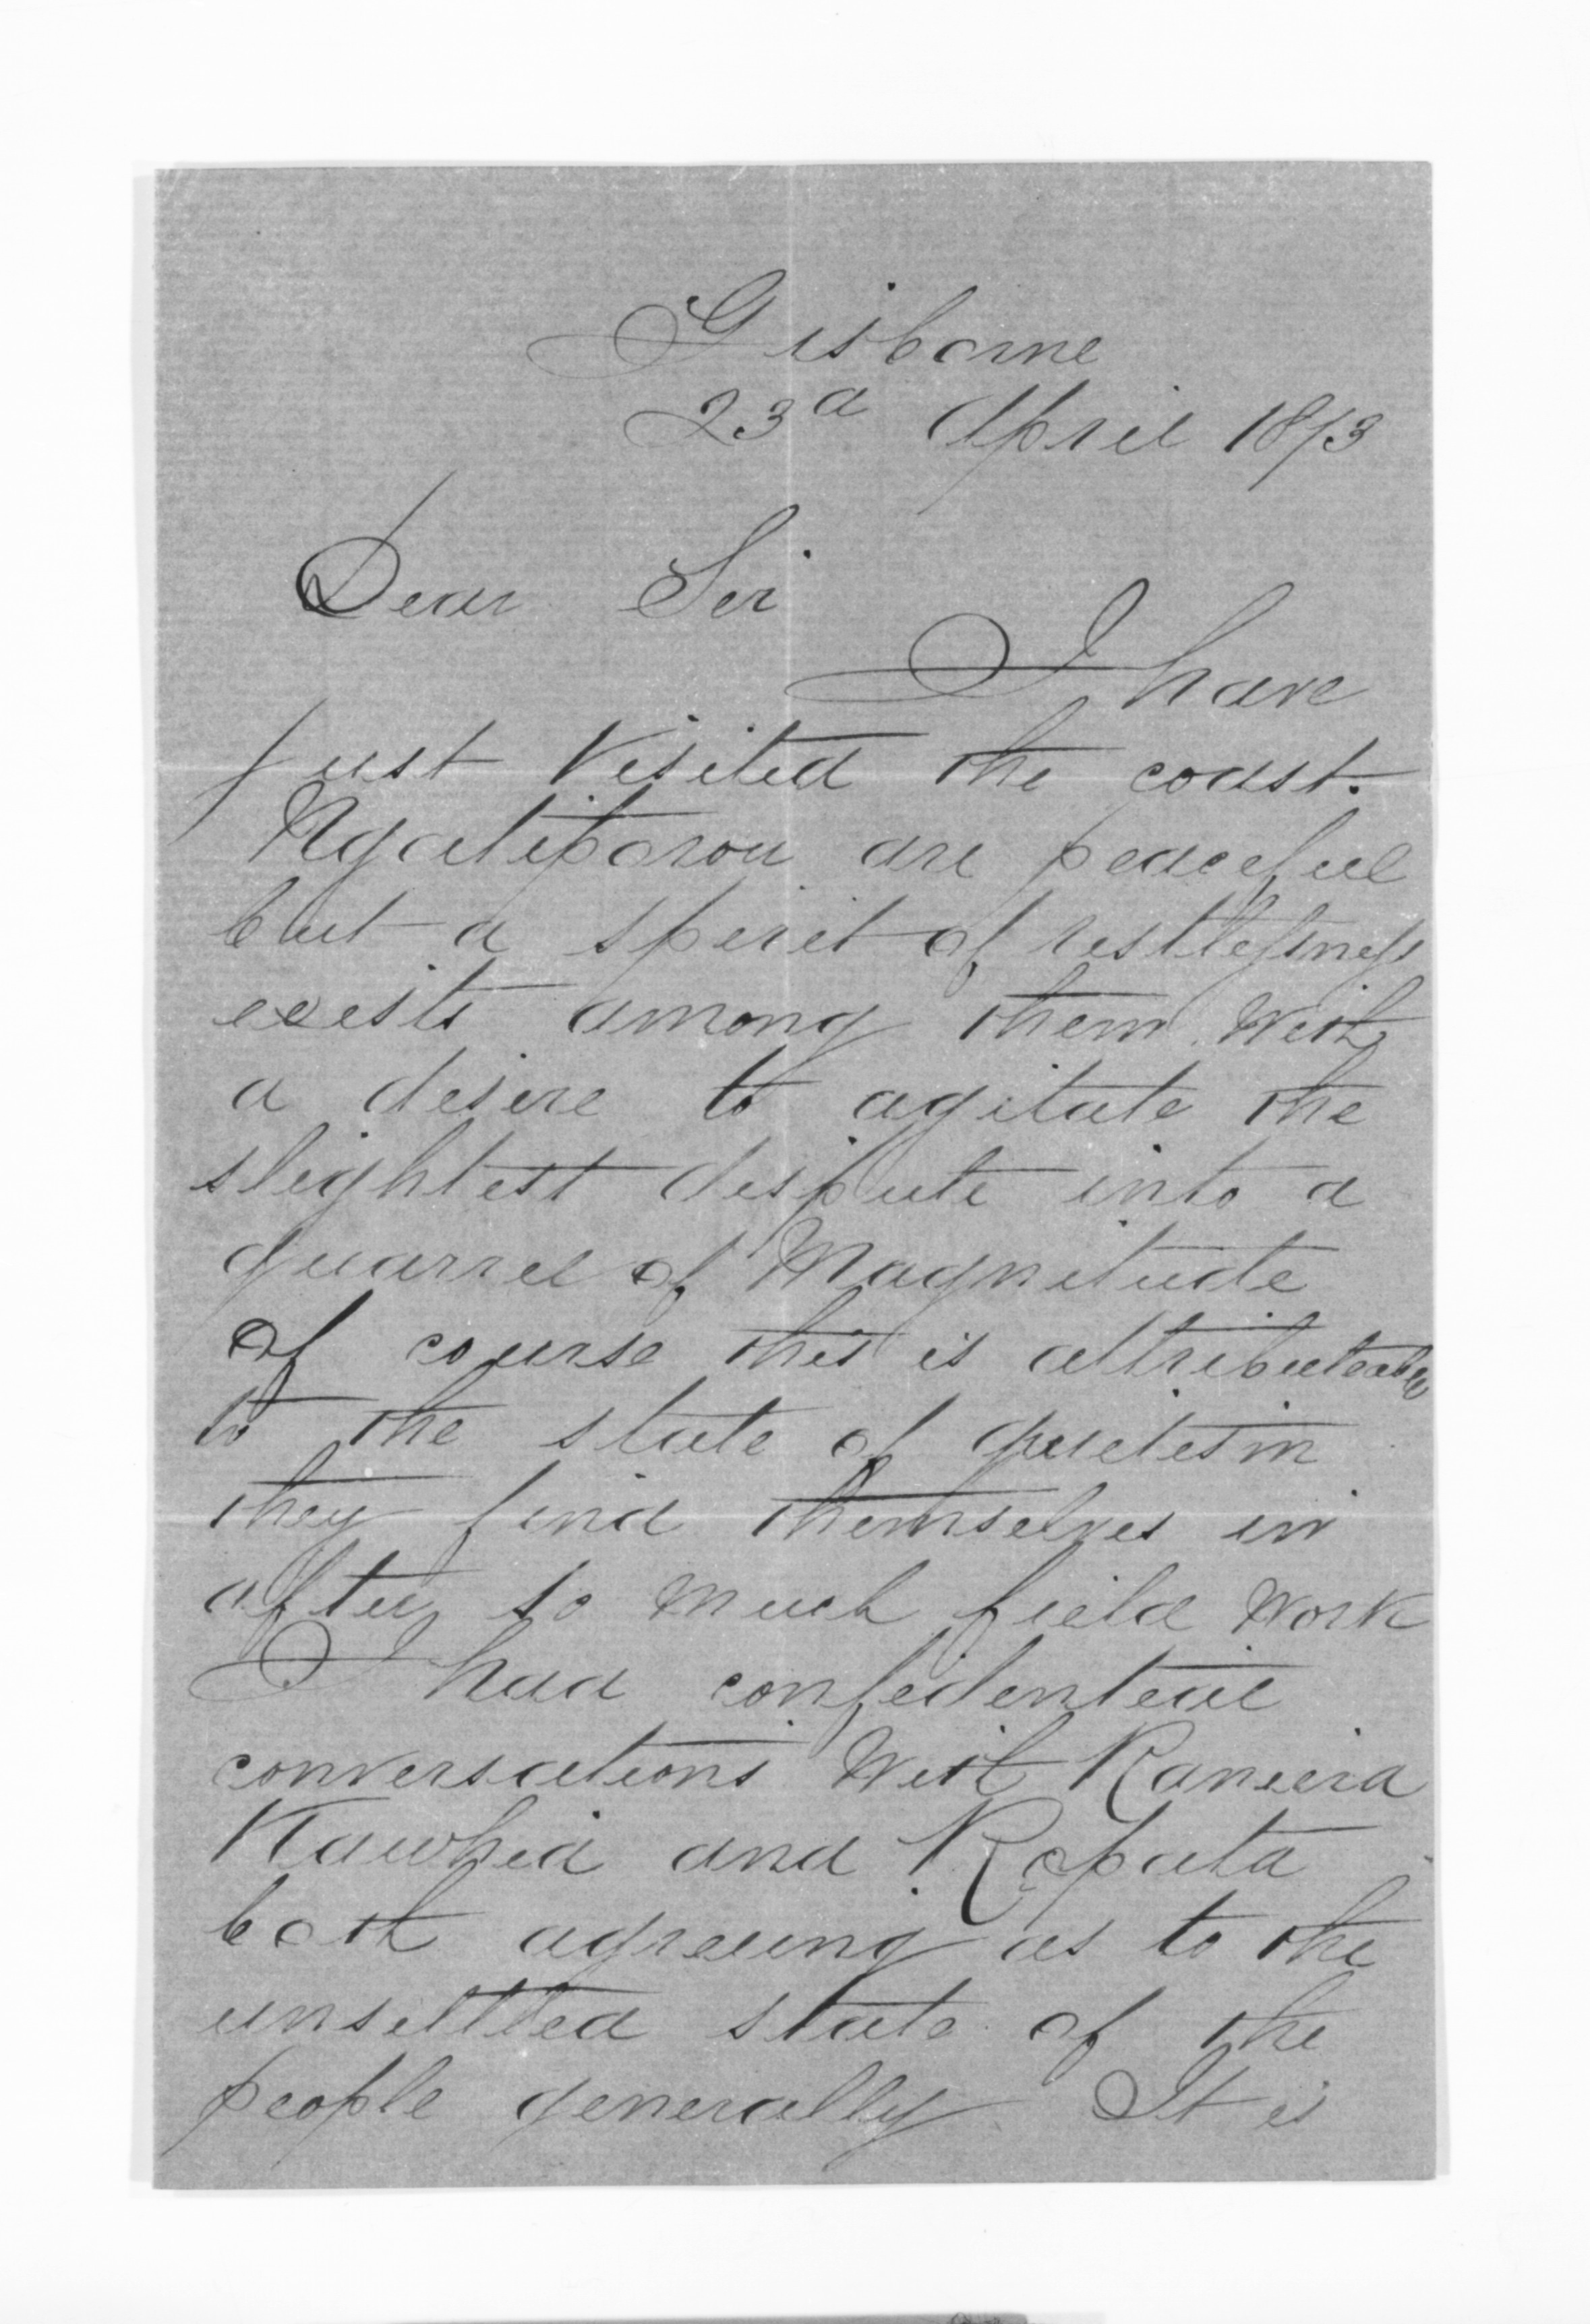 Gisborne
23d April 1873
Dear Sir
I have
just visited the coast.
Ngatiporou are peaceful
but a spirit of restlessness
exists among them with
a desire to agitate the
slightest dispute into a
quarrel of Magnitude
Of course this is attributeable
to the state of quietism
they find themselves in
after so much field work
I had confidential
conversations with Ranieira
Kawhia and Ropata
both agreeing as to the
unsettled state of the
people generally It is